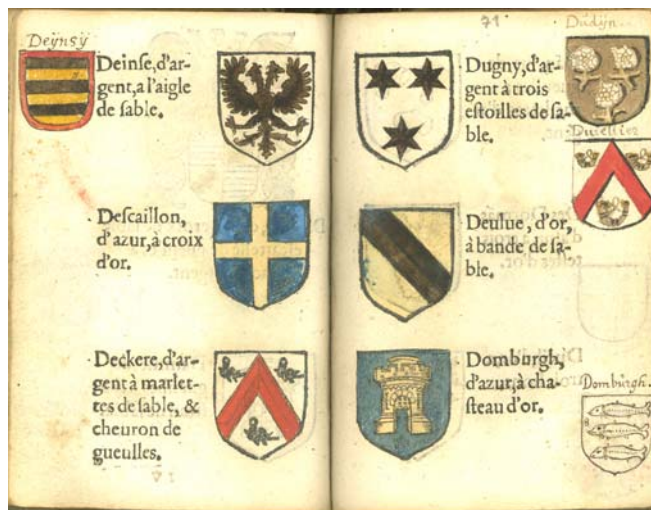 Deÿnsÿ
Deinſe, d'ar-
gent, a l'aigle
de ſable.
Deſcaillon,
d'azur, à croix
d'or.
Deckere, d'ar-
gent à marlet-
tes de ſable, &
cheuron de
gueulles.
71
Dugny, d'ar-
gent à trois
eſtoilles de ſa-
ble.
Deulue, d'or,
à bande de ſa-
ble.
Domburgh,
d'azur, à cha-
ſteau d'or.
Dúdÿn
Dombúrgh.